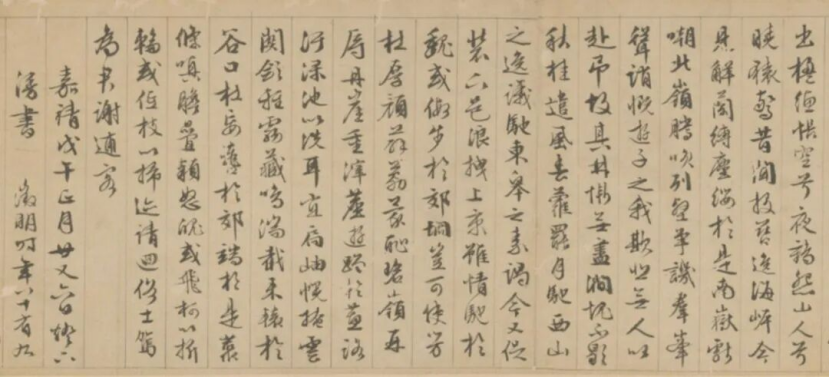 出楹蕙帳空兮夜鶴怨山人兮
曉猿驚昔聞投簪逸海岸今
見解蘭縛塵纓於是南嶽獻
嘲北嶺騰笑列壑爭譏羣峯
聳誚慨遊子之我欺悲無人以
赴弔故其林慚無盡澗愧不歇
秋桂遣風春蘿羅月馳西山
之逸議馳東皋之素謁今又促
裝下邑浪拽上京雖情馳於
魏或假步於郊坰豈可使芳
杜厚顏薜荔蒙恥碧嶺再
辱丹崖重滓塵遊躅於蕙路
汙淥池以洗耳宜扃岫幌掩雲
關斂輕霧藏鳴湍截來轅於
谷口杜妄轡於郊端於是叢
條嗔膽疊穎怒魄或飛柯以折
輪或低枝以掃迹請迴俗士駕
為君謝逋客
嘉靖戊午正月廿又六日燈下
漫書 徵明時年八十有九